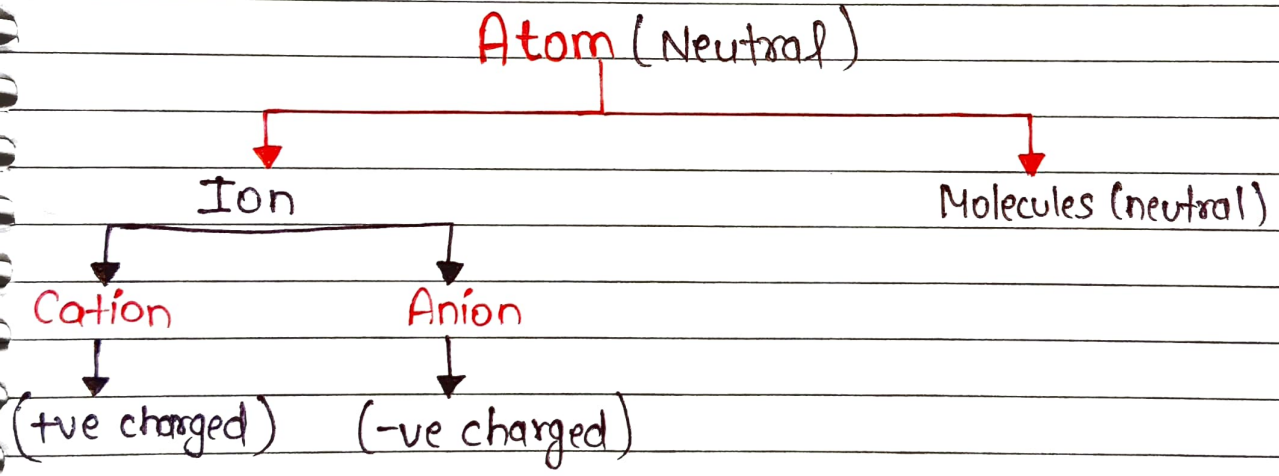 Atom (Neutral)
Ion
Molecules (neutral)
Cation
Anion
(+ve charged)
(-ve charged)